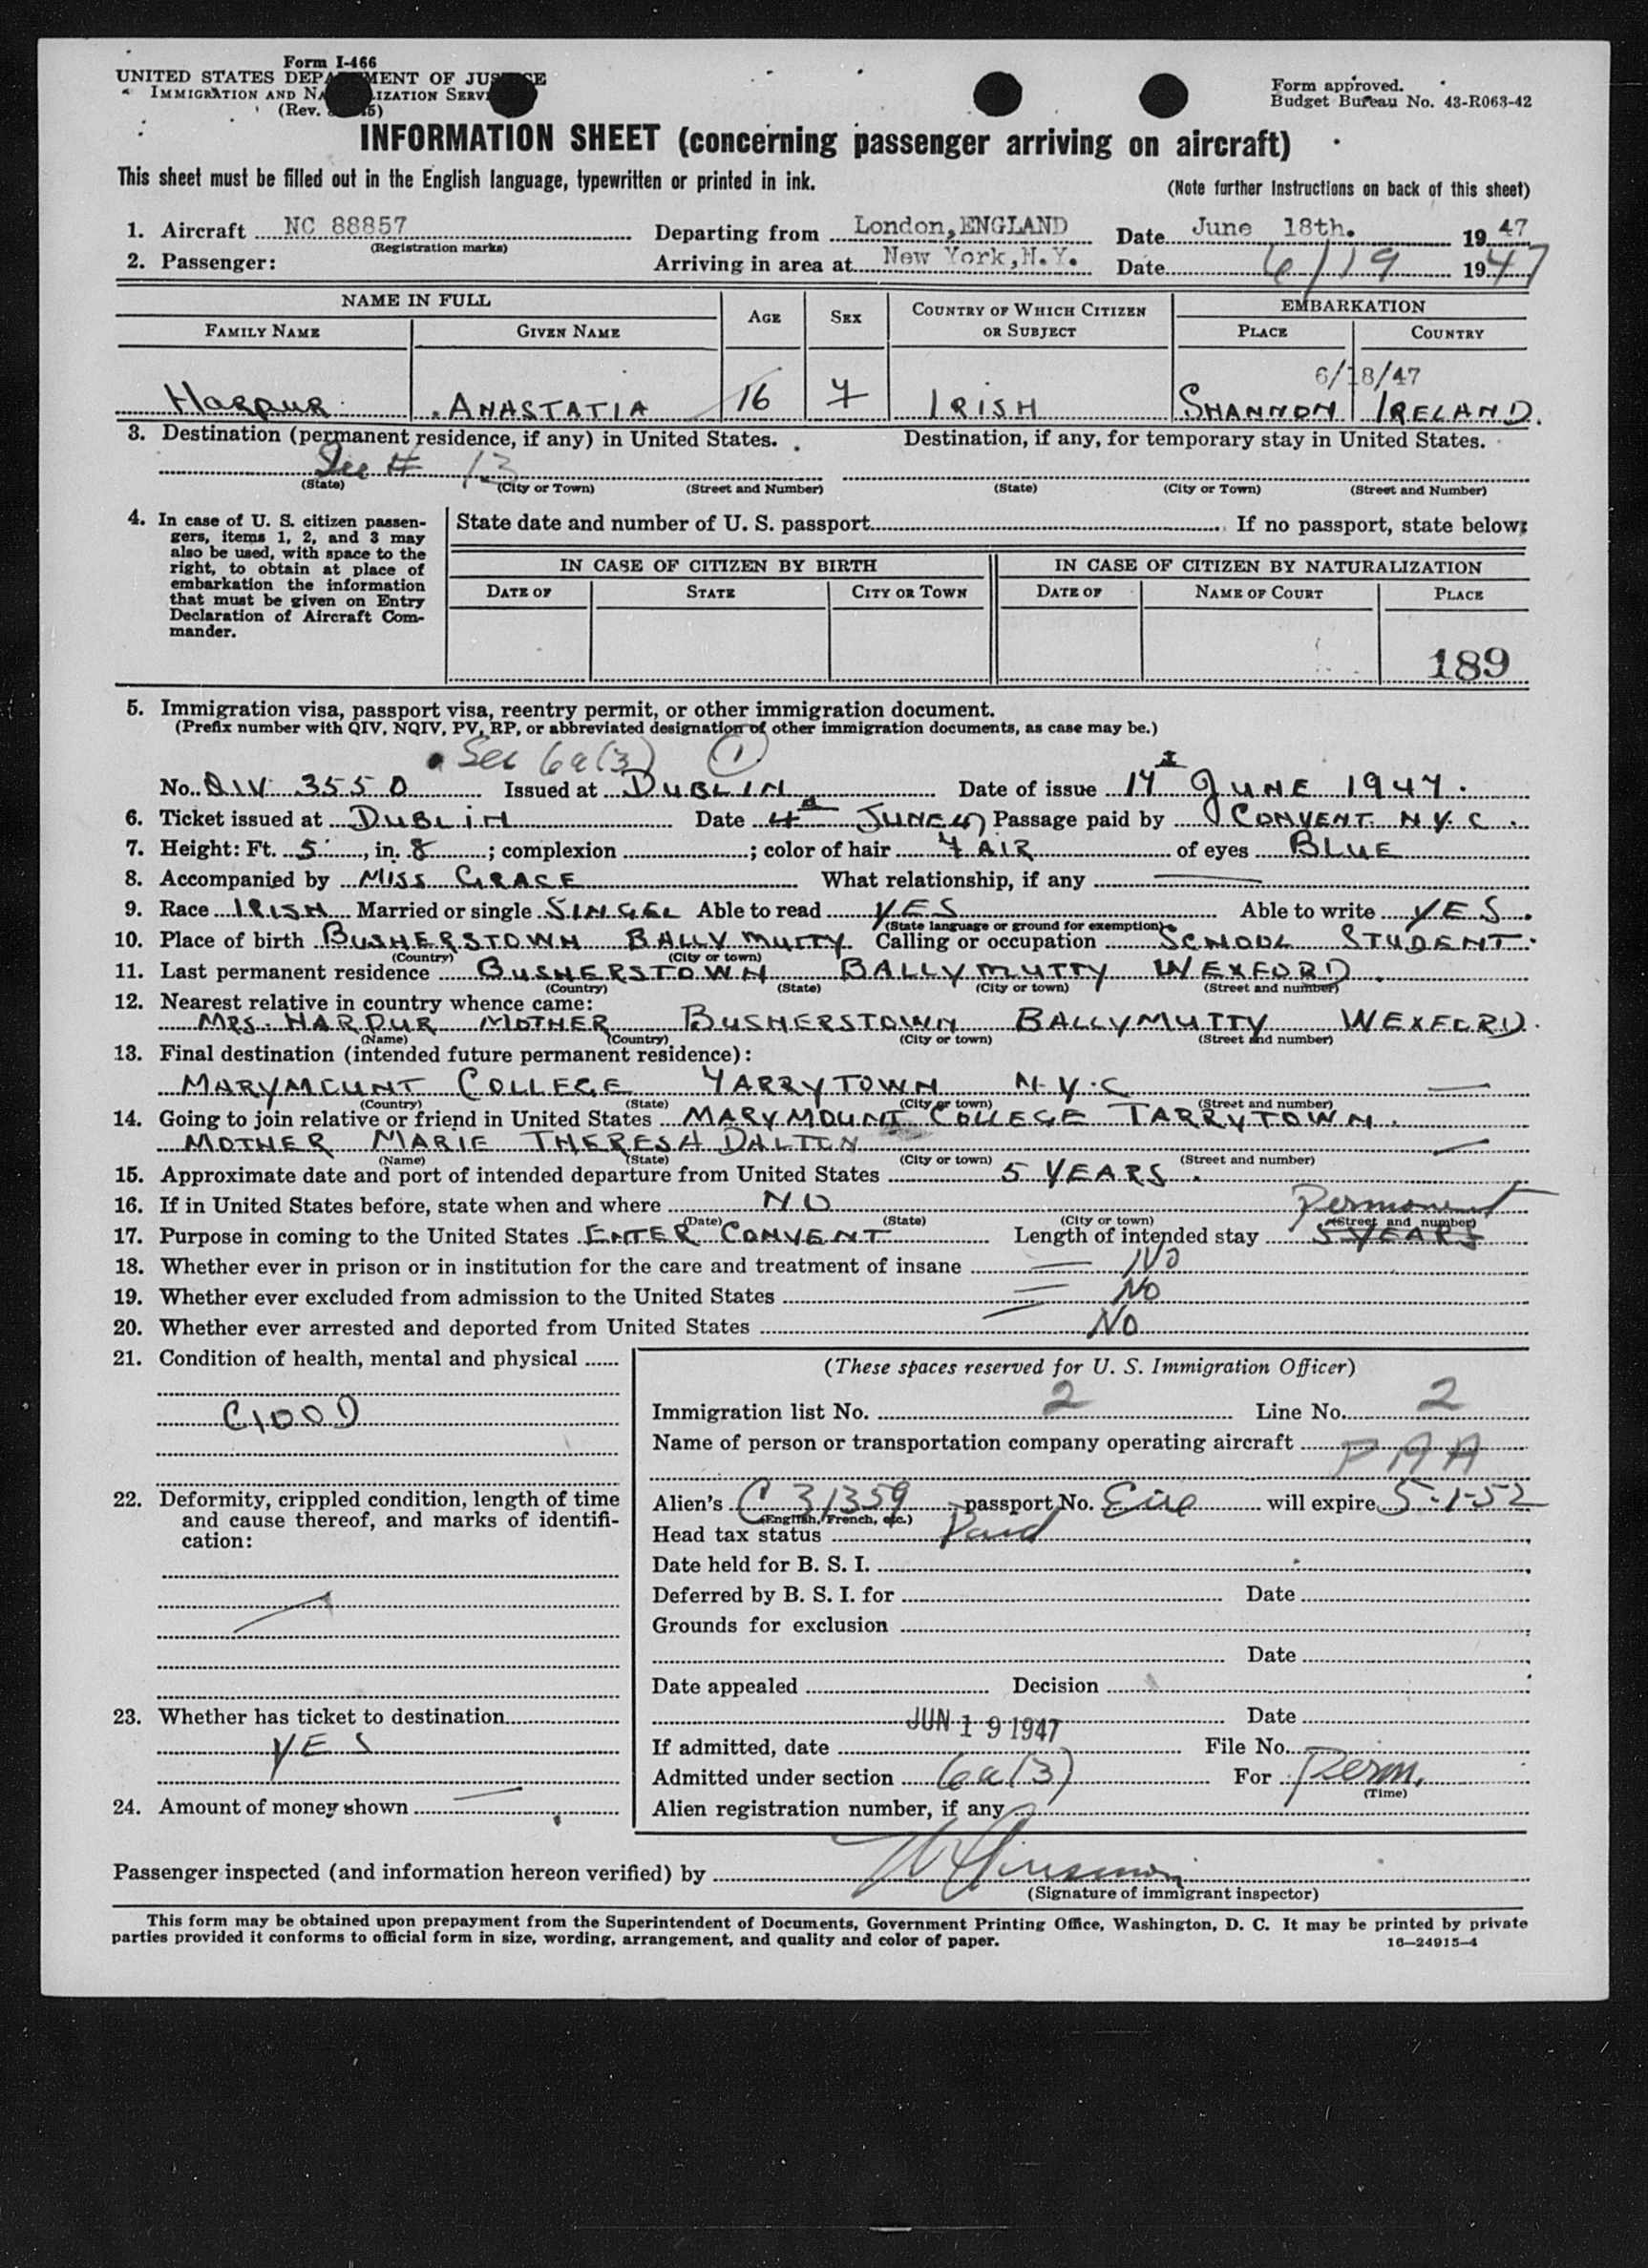 Form I-466
UNITED STATES DEPARTMENT OF JUSTICE
IMMIGRATION AND NATURALIZATION SERVICE
(Rev.
Form approved.
Budget Bureau No. 43-R063-42
INFORMATION SHEET (concerning passenger arriving on aircraft)
This sheet must be filled out in the English language, typewritten or printed in ink.
(Note further Instructions on back of this sheet)
1. Aircraft NC 88857 Departing from London, ENGLAND Date June 18th. 1947
(Registration marks)
2. Passenger: Arriving in area at New York, N.Y. Date 6/19 1947
NAME IN FULL AGE SEX COUNTRY OF WHICH CITIZEN OR SUBJECT EMBARKATION
FAMILY NAME GIVEN NAME PLACE COUNTRY
6/18/47
HARPUR ANASTATIA 16 F IRISH SHANNON IRELAND.
3. Destination (permanent residence, if any) in United States. Destination, if any, for temporary stay in United States.
See # 13
(State) (City or Town) (Street and Number) (State) (City or Town) (Street and Number)
4. In case of U. S. citizen passen-
gers, items 1, 2, and 3 may
also be used, with space to the
right, to obtain at place of
embarkation the information
that must be given on Entry
Declaration of Aircraft Com-
mander.
State date and number of U. S. passport. If no passport, state below:
IN CASE OF CITIZEN BY BIRTH IN CASE OF CITIZEN BY NATURALIZATION
DATE OF STATE CITY OR TOWN DATE OF NAME OF COURT PLACE
189
5. Immigration visa, passport visa, reentry permit, or other immigration document.
(Prefix number with QIV, NQIV, PV, RP, or abbreviated designation of other immigration documents, as case may be.)
Sec 6a(3) 1
No. QIV 3550 Issued at DUBLIN Date of issue 17 JUNE 1947.
6. Ticket issued at DUBLIN Date 4 JUNE 47 Passage paid by CONVENT N.Y.C.
7. Height: Ft. 5, in. 8; complexion ; color of hair FAIR of eyes BLUE
8. Accompanied by MISS GRACE What relationship, if any
9. Race IRISH Married or single SINGEL Able to read YES Able to write YES.
(State language or ground for exemption)
10. Place of birth BUSHERSTOWN BALLYMUTTY Calling or occupation SCHOOL STUDENT.
(Country) (City or town)
11. Last permanent residence BUSHERSTOWN BALLYMUTTY WEXFORD.
(Country) (State) (City or town) (Street and number)
12. Nearest relative in country whence came:
MRS. HARPUR MOTHER BUSHERSTOWN BALLYMUTTY WEXFORD.
(Name) (Country) (City or town) (Street and number)
13. Final destination (intended future permanent residence):
MARYMOUNT COLLEGE TARRYTOWN N.Y.C
(Country) (State) (City or town) (Street and number)
14. Going to join relative or friend in United States MARYMOUNT COLLEGE TARRYTOWN.
MOTHER MARIE THERESA DALTON
(Name) (State) (City or town) (Street and number)
15. Approximate date and port of intended departure from United States 5 YEARS.
16. If in United States before, state when and where NO Permanent
(Date) (State) (City or town) (Street and number)
17. Purpose in coming to the United States ENTER CONVENT Length of intended stay 5 YEARS
18. Whether ever in prison or in institution for the care and treatment of insane No
19. Whether ever excluded from admission to the United States No
20. Whether ever arrested and deported from United States No
21. Condition of health, mental and physical
GOOD
22. Deformity, crippled condition, length of time
and cause thereof, and marks of identifi-
cation:
23. Whether has ticket to destination
YES
24. Amount of money shown
(These spaces reserved for U. S. Immigration Officer)
Immigration list No. 2 Line No. 2
Name of person or transportation company operating aircraft PAA
Alien's C 31359 passport No. Eire will expire 5-1-52
(English, French, etc.)
Head tax status Paid
Date held for B. S. I.
Deferred by B. S. I. for Date
Grounds for exclusion
Date
Date appealed Decision
Date
JUN 19 1947
If admitted, date File No.
Admitted under section 6a(3) For Perm.
(Time)
Alien registration number, if any
Passenger inspected (and information hereon verified) by
(Signature of immigrant inspector)
This form may be obtained upon prepayment from the Superintendent of Documents, Government Printing Office, Washington, D. C. It may be printed by private
parties provided it conforms to official form in size, wording, arrangement, and quality and color of paper.
16—24915-4